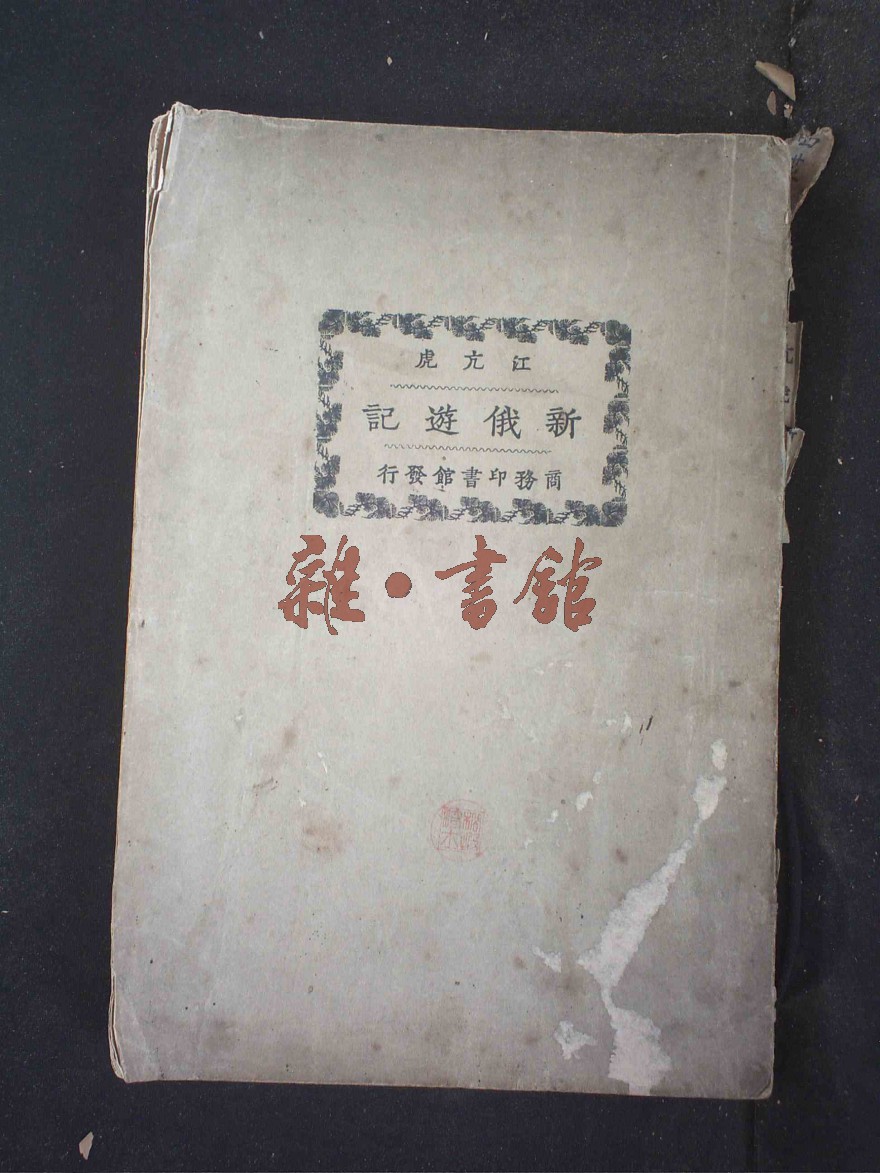 江亢虎
新俄遊記
商務印書館發行
雜·書館